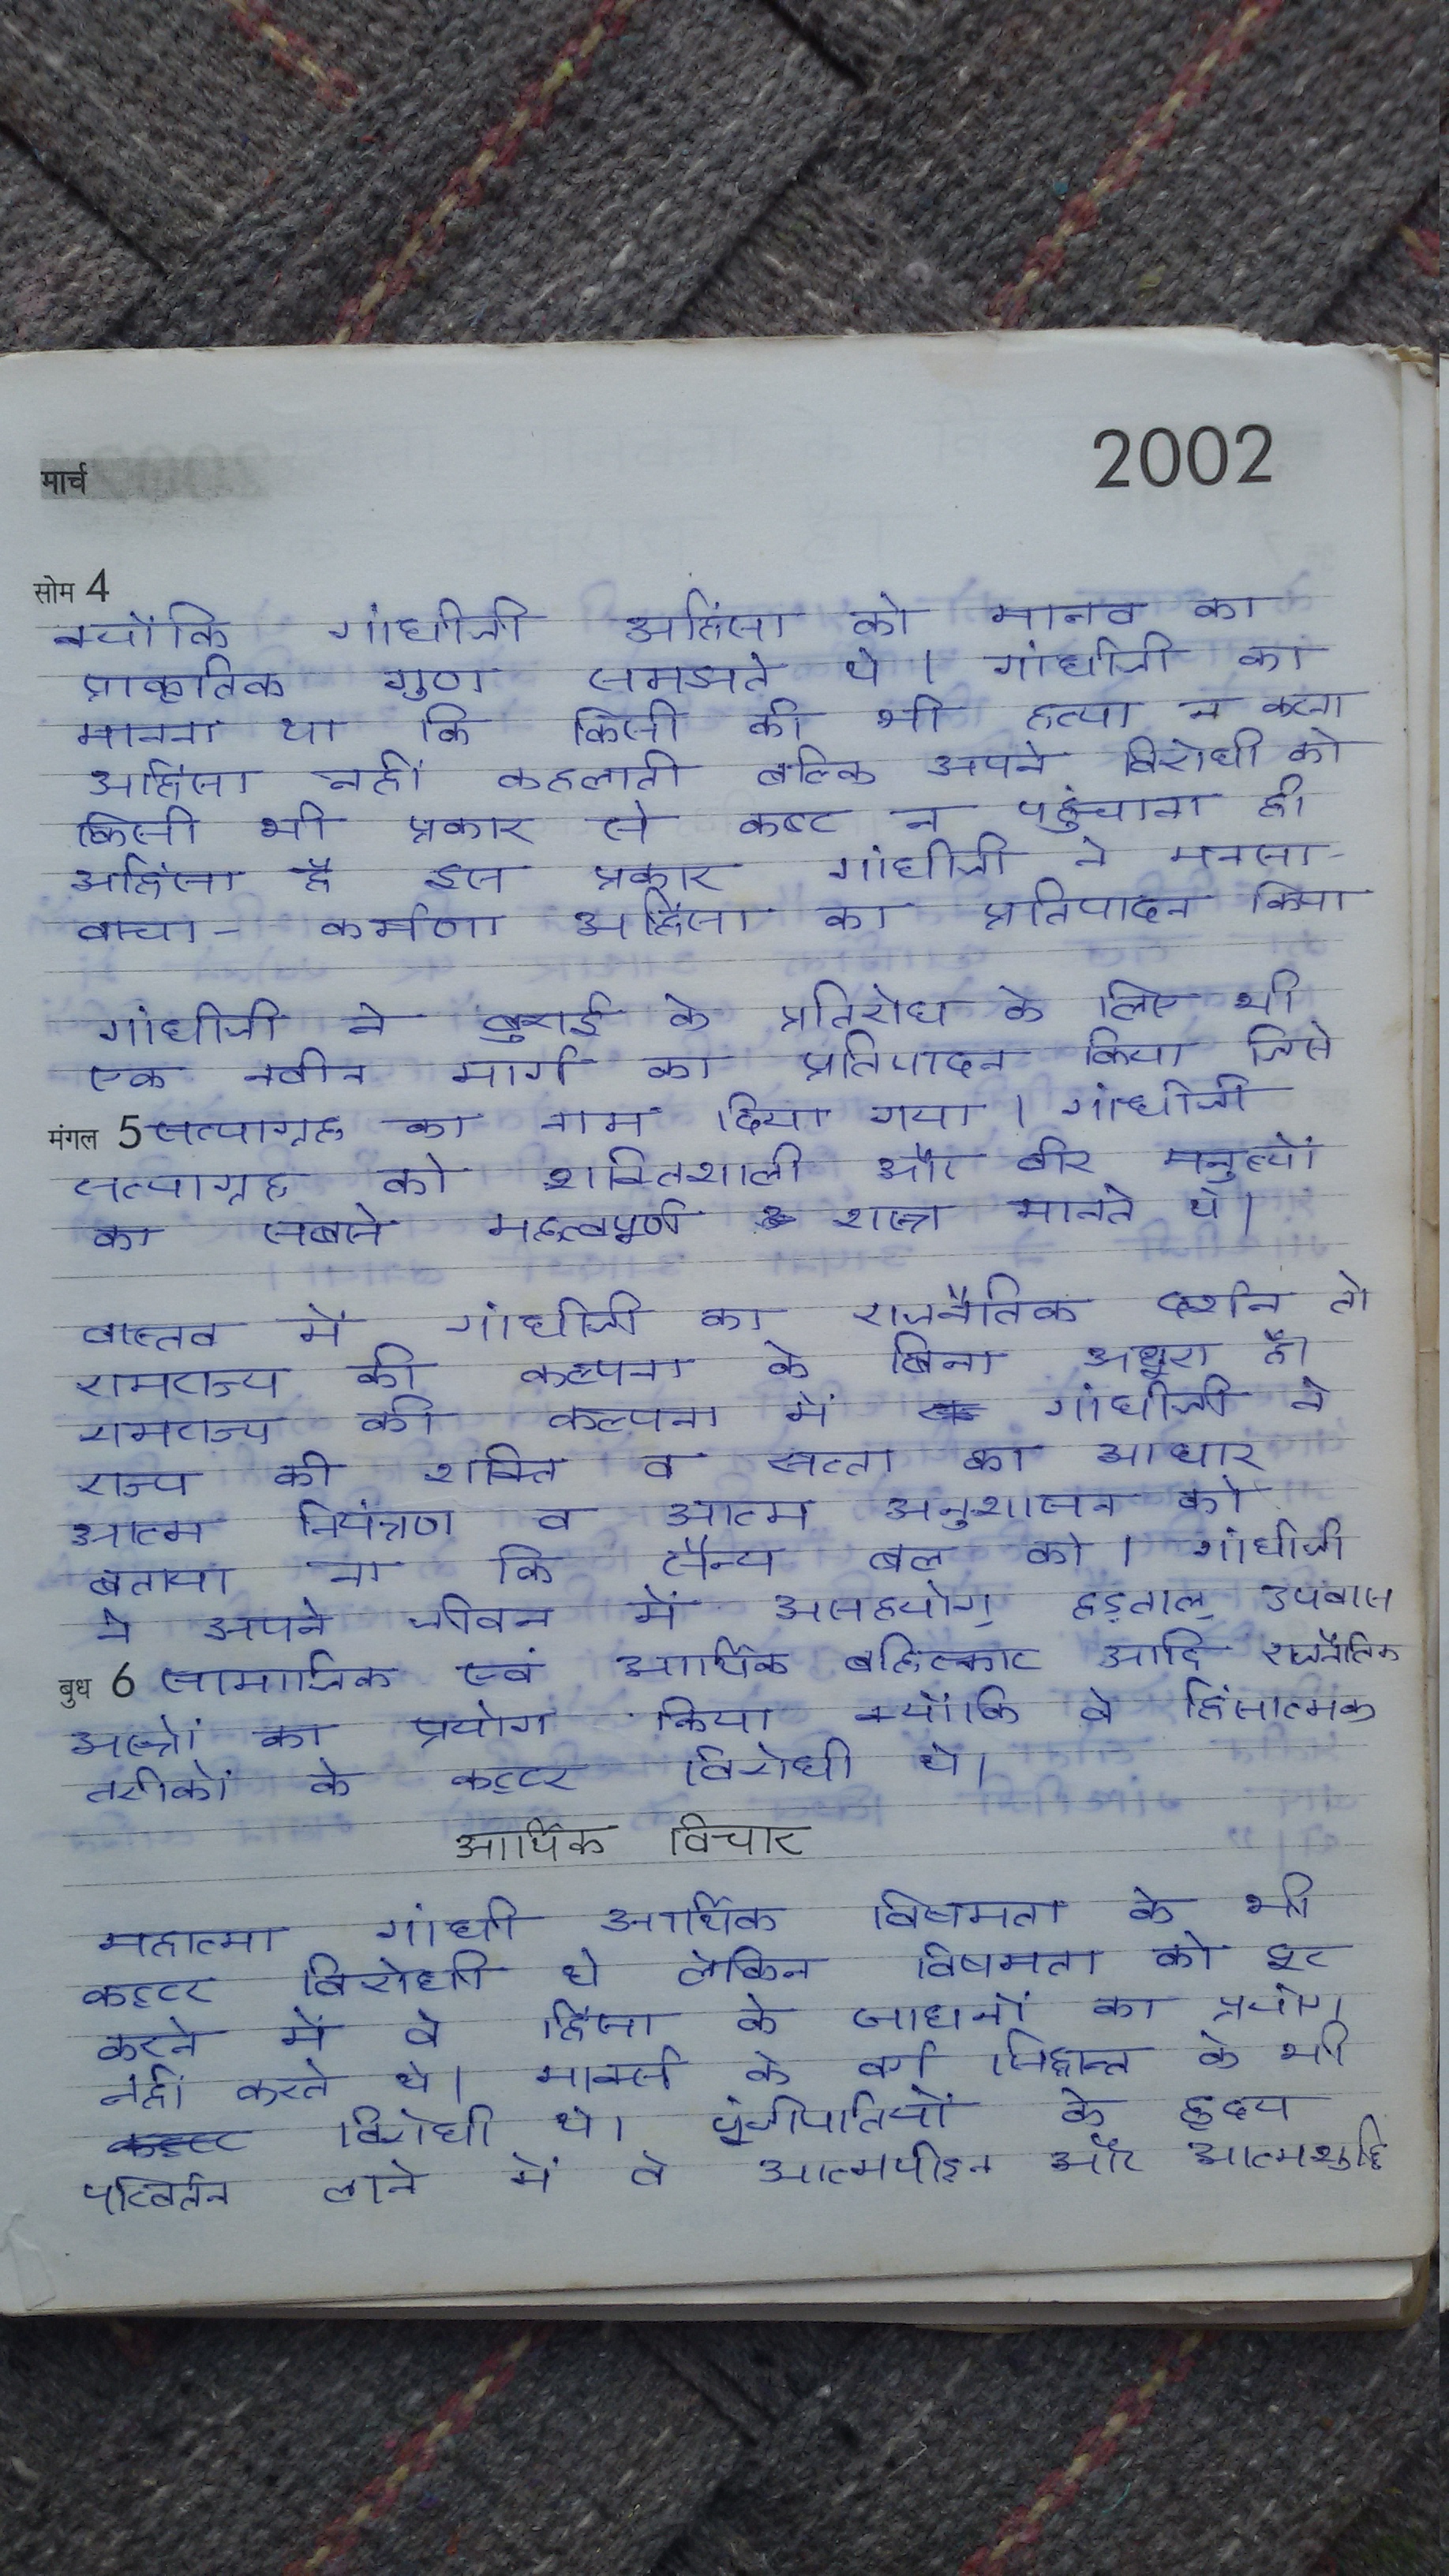 मार्च
2002
सोम 4
क्योंकि गांधीजी अहिंसा को मानव का
प्राकृतिक गुण समझते थे । गांधीजी का
मानना था कि किसी की भी हत्या न करना
अहिंसा नहीं कहलाती बल्कि अपने विरोधी को
किसी भी प्रकार से कष्ट न पहुंचाना ही
अहिंसा है इस प्रकार गांधीजी ने मनसा-
वाचा- कर्मणा अहिंसा का प्रतिपादन किया
गांधीजी ने बुराई के प्रतिरोध के लिए भी
एक नवीन मार्ग का प्रतिपादन किया जिसे
मंगल 5 सत्याग्रह का नाम दिया गया । गांधीजी
सत्याग्रह को शक्तिशाली और वीर मनुष्यों
का सबसे महत्वपूर्ण शस्त्र मानते थे ।
वास्तव में गांधीजी का राजनैतिक दर्शन तो
रामराज्य की कल्पना के बिना अधूरा है।
रामराज्य की कल्पना में गांधीजी ने
राज्य की शक्ति व सत्ता का आधार
आत्म नियंत्रण व आत्म अनुशासन को
बताया ना कि सैन्य बल को । गांधीजी
ने अपने जीवन में असहयोग, हड़ताल, उपवास
बुध 6 सामाजिक एवं आर्थिक बहिष्कार आदि राजनैतिक
अस्त्रों का प्रयोग किया क्योंकि वे हिंसात्मक
तरीकों के कट्टर विरोधी थे।
आर्थिक विचार
महात्मा गांधी आर्थिक विषमता के भी
कट्टर विरोधी थे लेकिन विषमता को दूर
करने में वे हिंसा के साधनों का प्रयोग
नहीं करते थे। मार्क्स के वर्ग सिद्धान्त के भी
विरोधी थे। पूंजीपतियों के हृदय
परिवर्तन लाने में वे आत्मपीड़न और आत्मशुद्धि